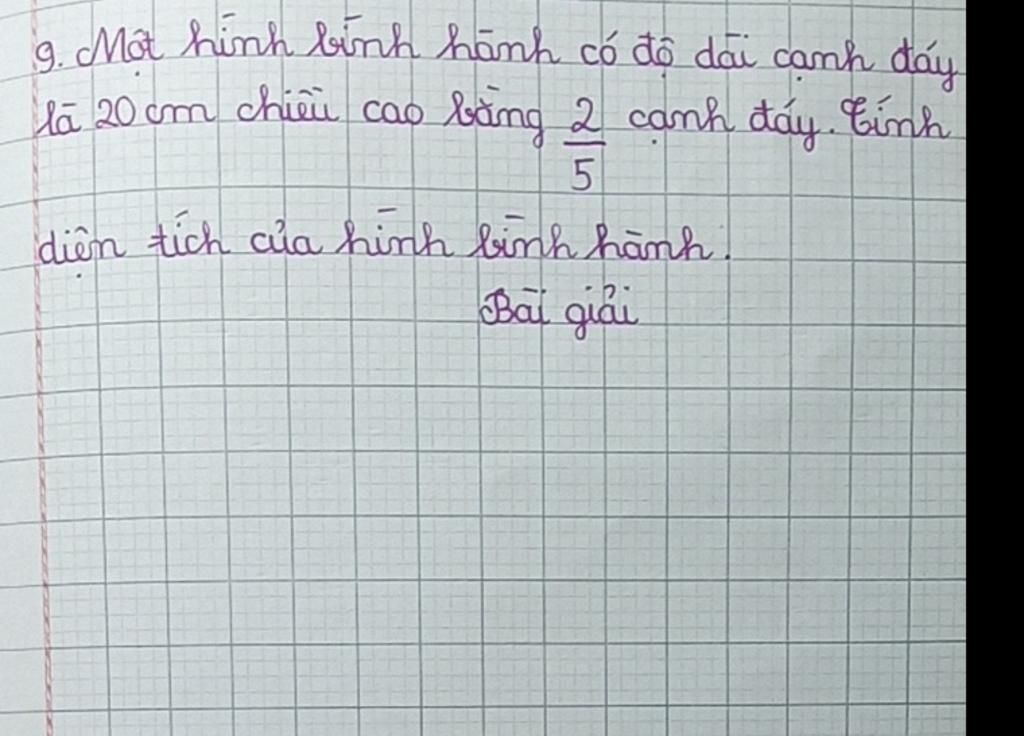 9. Một hình bình hành có độ dài cạnh đáy
là 20 cm chiều cao bằng 2/5 cạnh đáy. Tính
diện tích của hình bình hành.
Bài giải